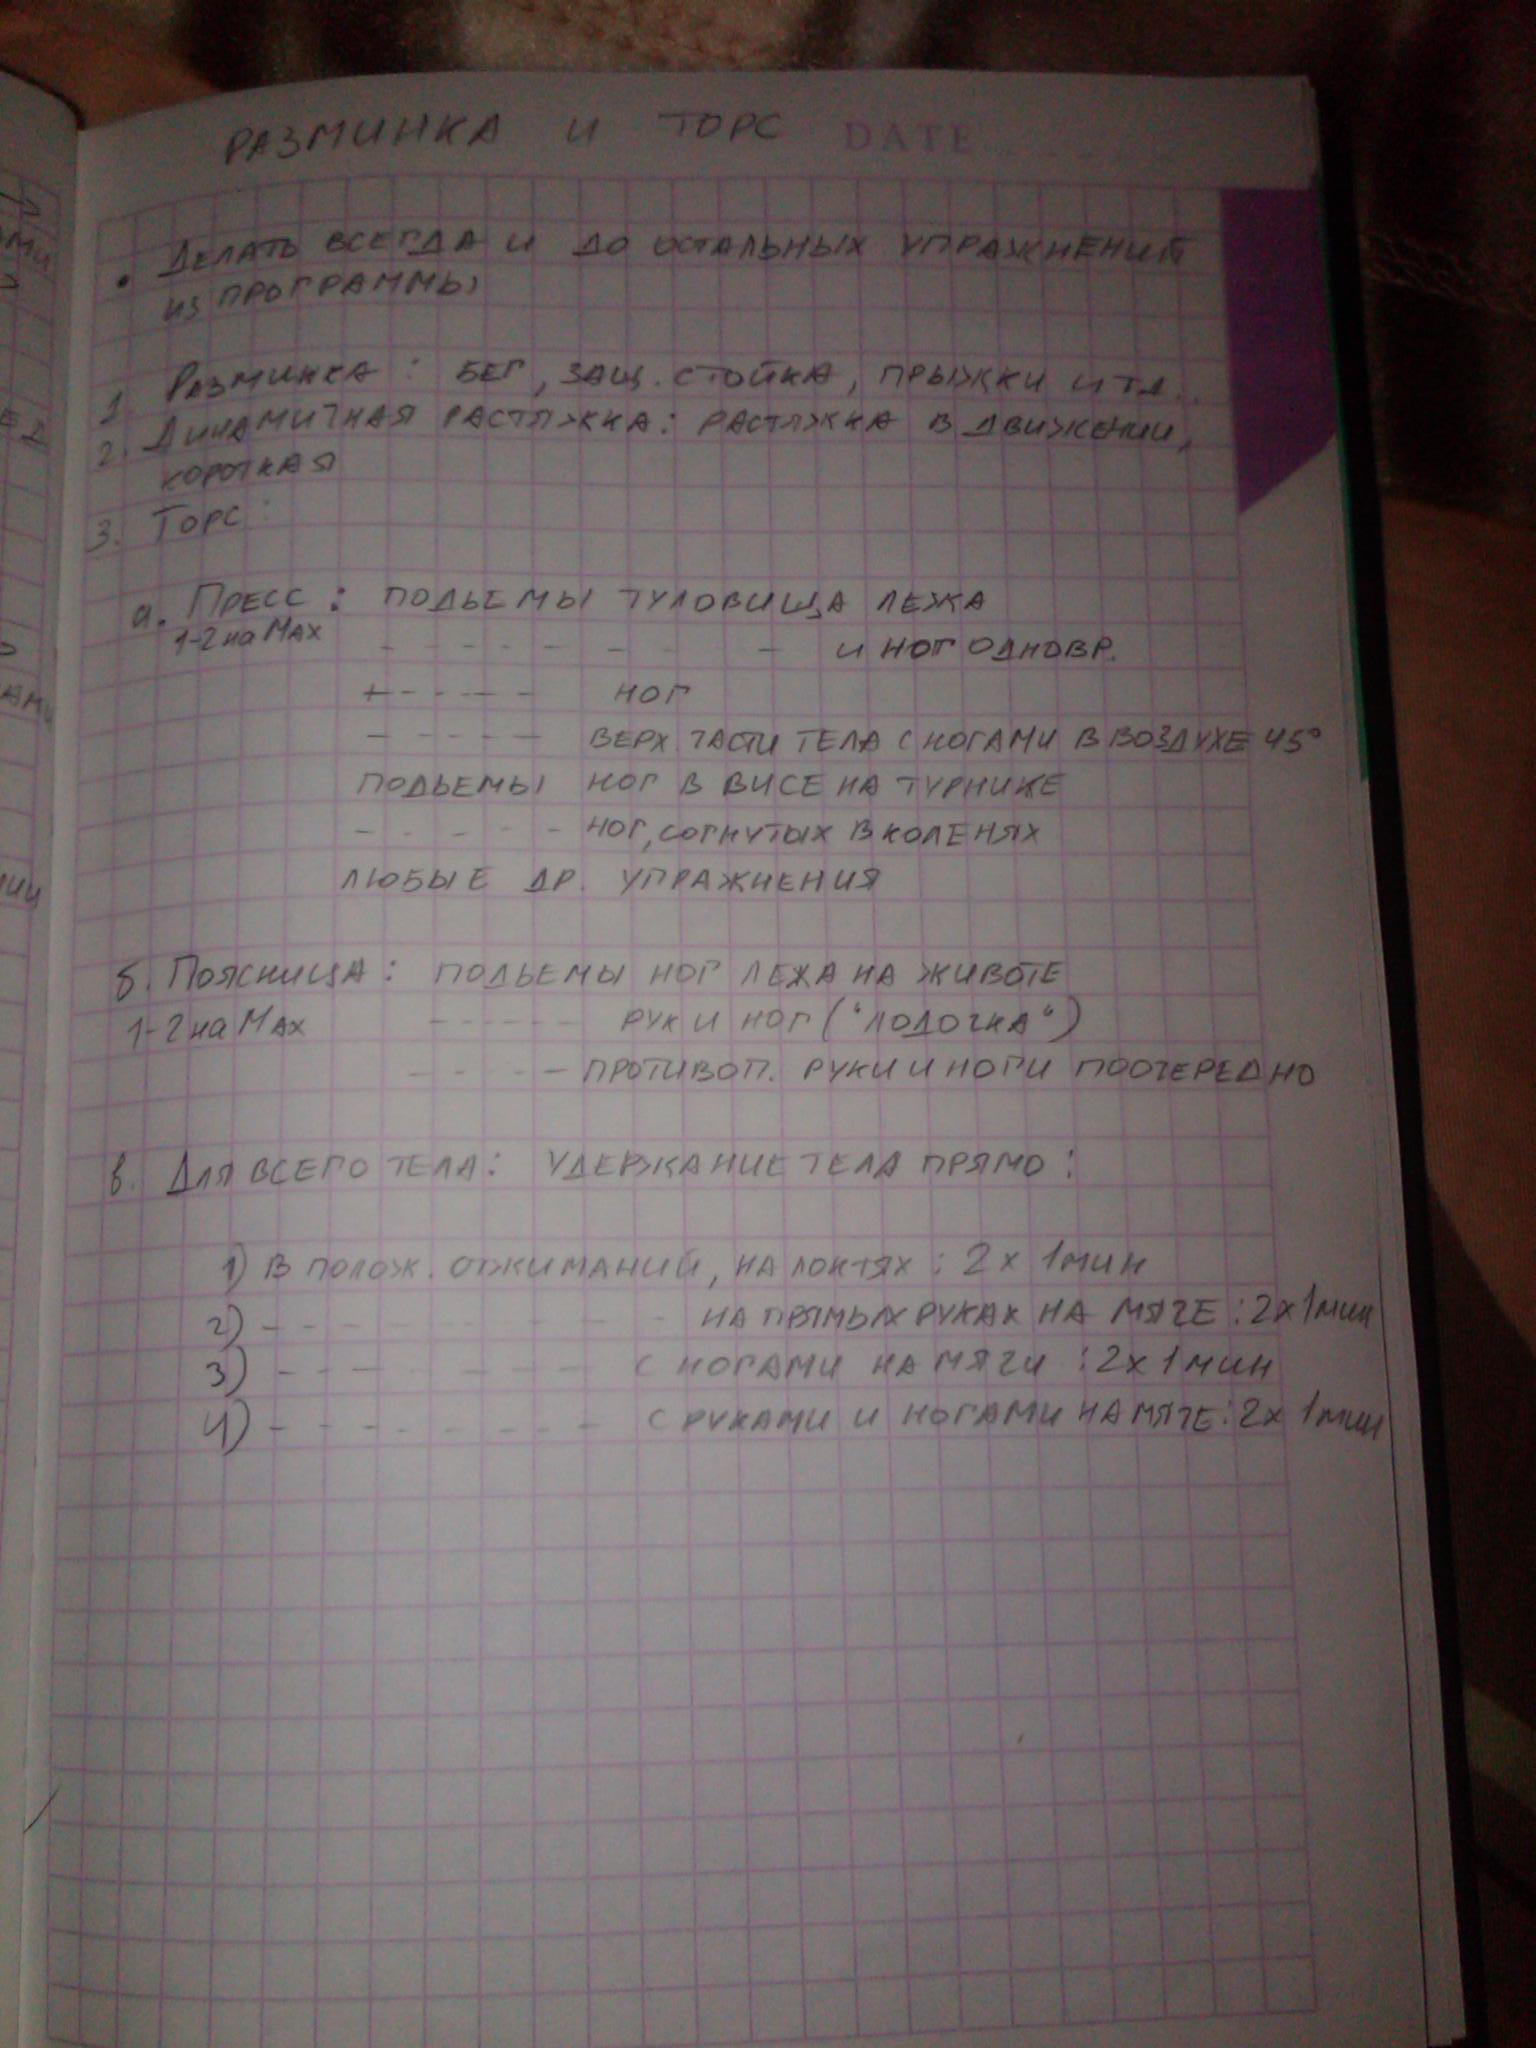 РАЗМИНКА И ТОРС DATE
• ДЕЛАТЬ ВСЕГДА И ДО ОСТАЛЬНЫХ УПРАЖНЕНИЙ
ИЗ ПРОГРАММЫ
1. РАЗМИНКА: БЕГ, ЗАЩ. СТОЙКА, ПРЫЖКИ И ТД..
2. ДИНАМИЧНАЯ РАСТЯЖКА: РАСТЯЖКА В ДВИЖЕНИИ,
КОРОТКАЯ
3. ТОРС:
а. ПРЕСС: ПОДЬЕМЫ ТУЛОВИЩА ЛЕЖА
1-2 на MAX - - - - - - - - И НОГ ОДНОВР.
+ - - - - - НОГ
- - - - - - ВЕРХ. ЧАСТИ ТЕЛА С НОГАМИ В ВОЗДУХЕ 45°
ПОДЬЕМЫ НОГ В ВИСЕ НА ТУРНИКЕ
- - - - - НОГ, СОГНУТЫХ В КОЛЕНЯХ
ЛЮБЫЕ ДР. УПРАЖНЕНИЯ
б. ПОЯСНИЦА: ПОДЬЕМЫ НОГ ЛЕЖА НА ЖИВОТЕ
1-2 на MAX - - - - - - РУК И НОГ ("ЛОДОЧКА")
- - - - - ПРОТИВОП. РУКИ И НОГИ ПООЧЕРЕДНО
в. ДЛЯ ВСЕГО ТЕЛА: УДЕРЖАНИЕ ТЕЛА ПРЯМО:
1) В ПОЛОЖ. ОТЖИМАНИЙ, НА ЛОКТЯХ: 2 x 1 МИН
2) - - - - - - - - - НА ПРЯМЫХ РУКАХ НА МЯЧЕ: 2 x 1 МИН
3) - - - - - - - - С НОГАМИ НА МЯЧИ: 2 x 1 МИН
4) - - - - - - - - С РУКАМИ И НОГАМИ НА МЯЧЕ: 2 x 1 МИН